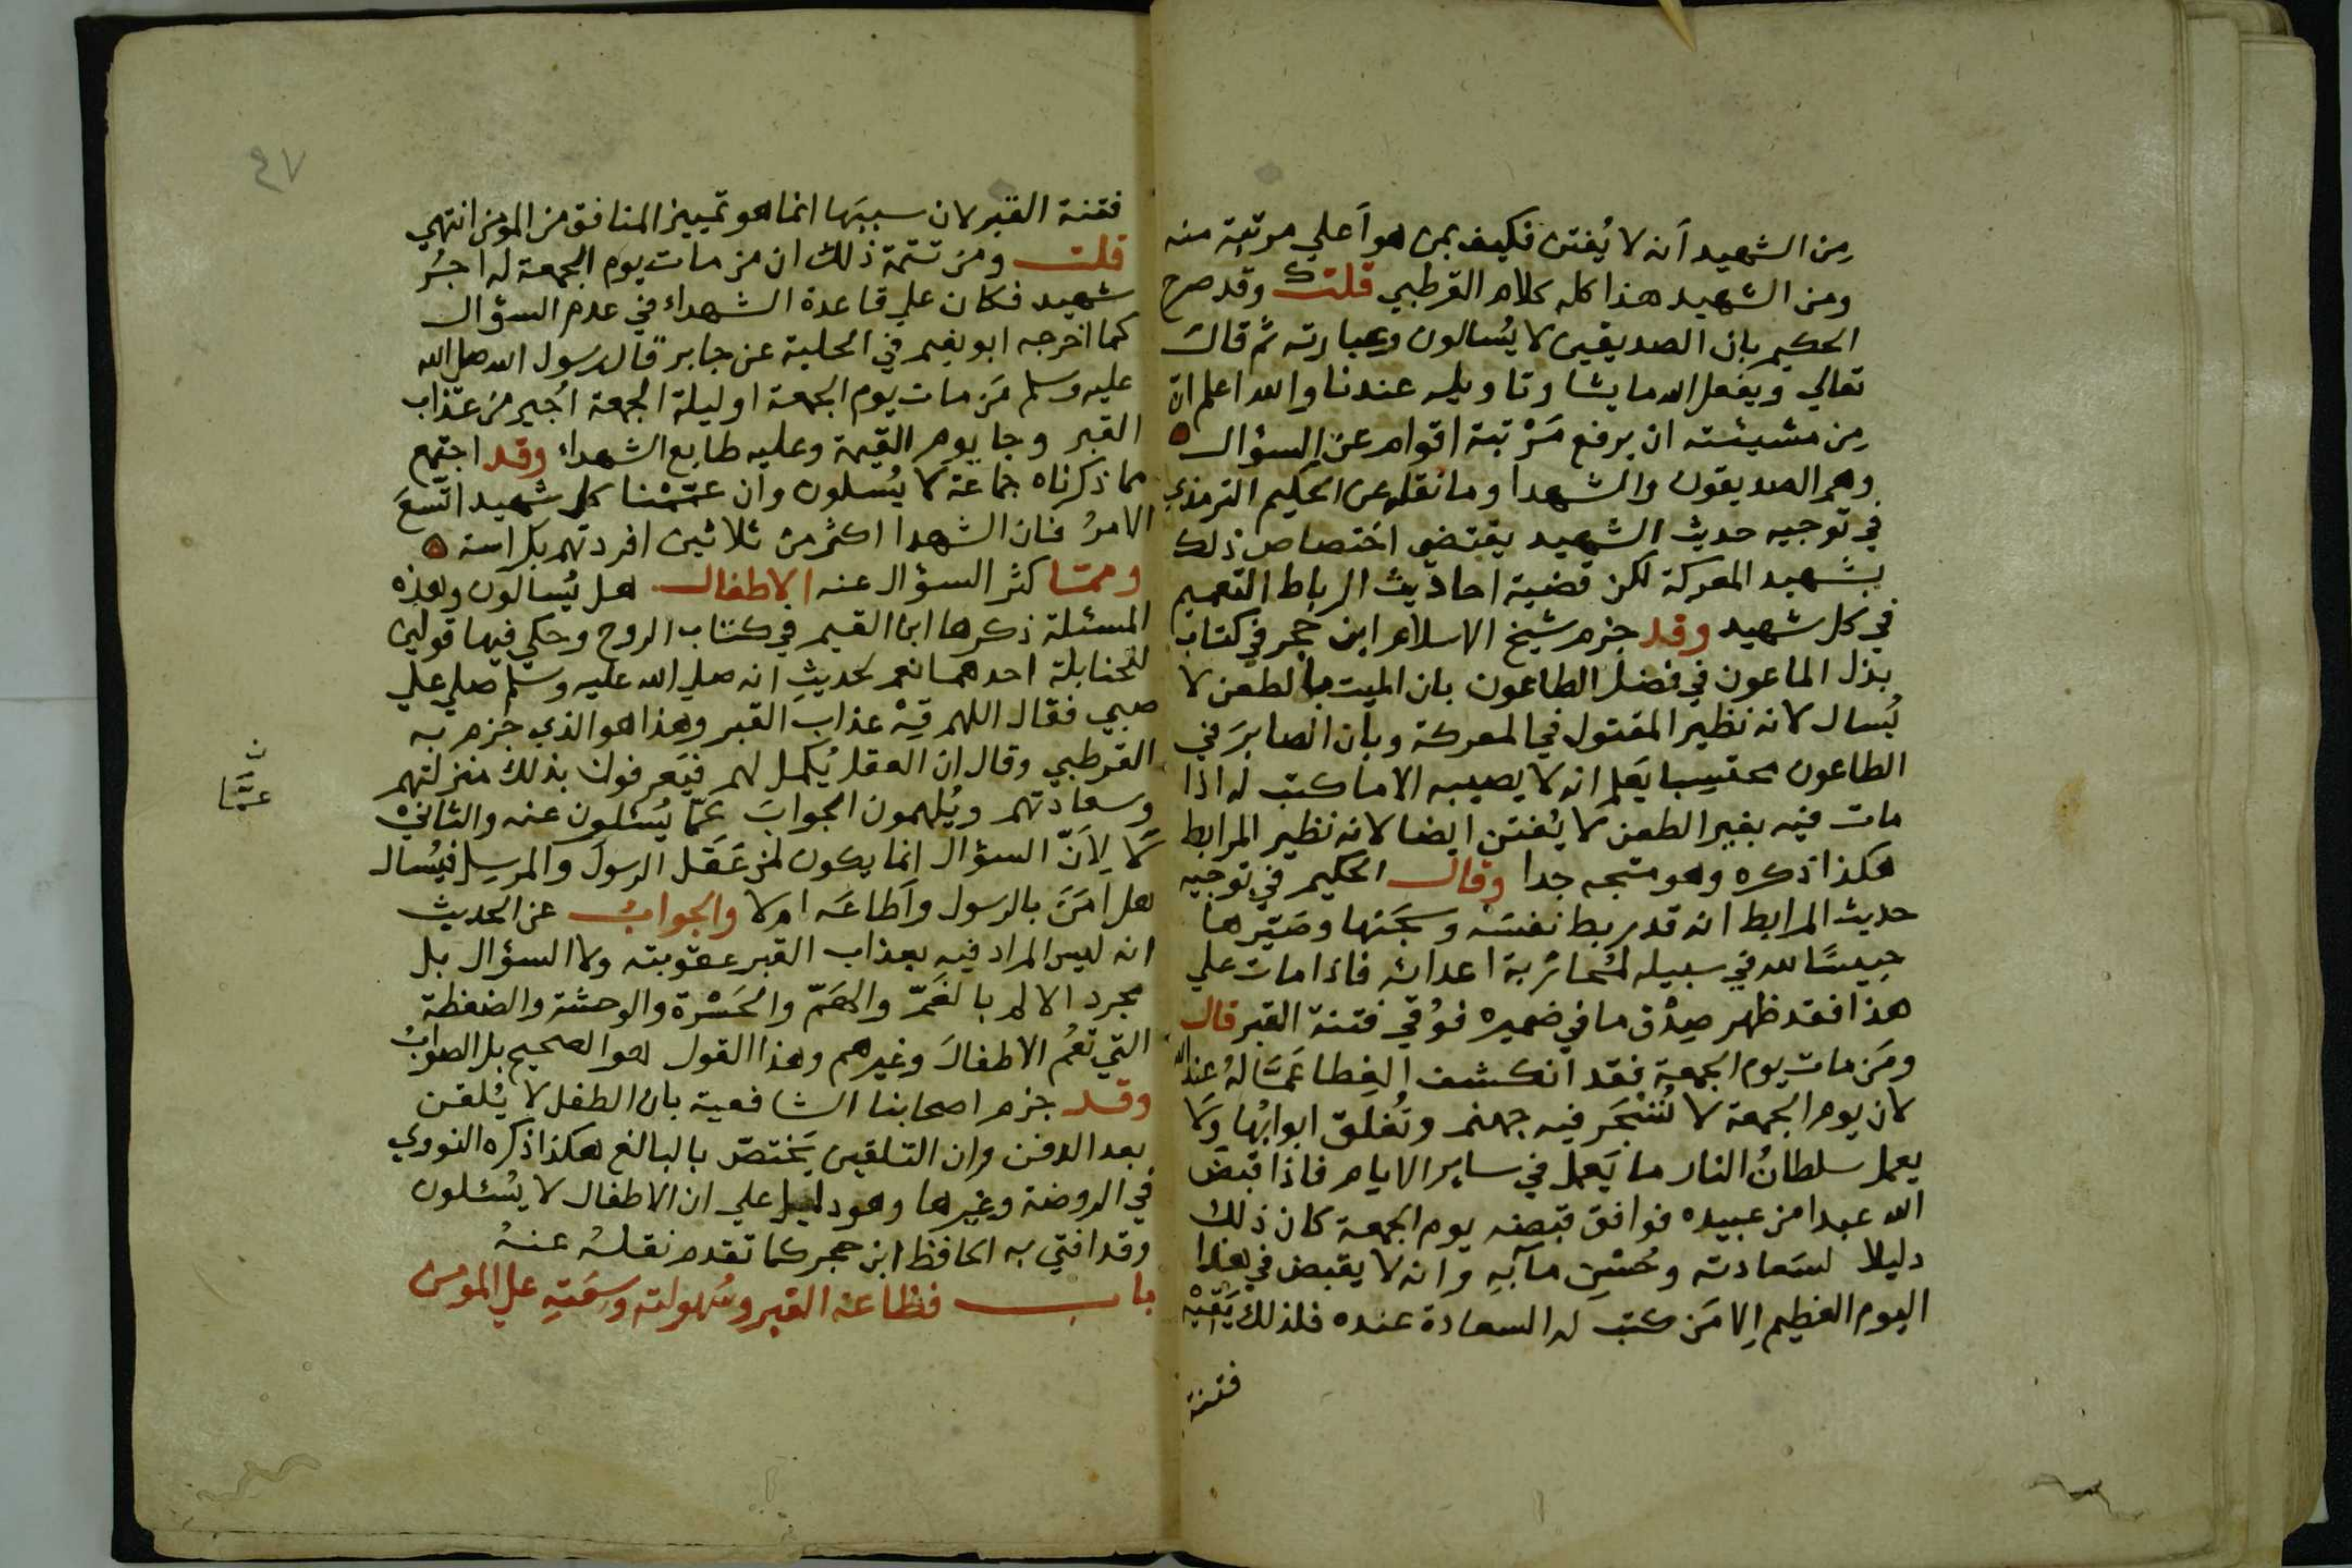 من الشهيد أنه لا يُفتن فكيف بمن هو أعلي مرتبة منه
ومن الشهيد هذا كله كلام القرطبي قلت وقد صرح
الحكيم بان الصديقين لا يُسالون وعبارته ثم قال
تعالي ويفعل الله ما يشا وتاويله عندنا والله اعلم ان
من مشيئته ان يرفع مَرْتبة اقوام عن السؤال ه
وهم الصديقون والشهدا وما نقله عن الحكيم الترمذي
في توجيه حديث الشهيد يقتضي اختصاص ذلك
بشهيد المعركة لكن قضية احاديث الرباط التعميم
في كل شهيد وقد جزم شيخ الاسلام ابن حجر في كتاب
بذل الماعون في فضل الطاعون بان الميت بالطعن لا
يُسال لانه نظير المقتول في المعركة وبان الصابرَ في
الطاعون محتسبا يَعلم انه لا يصيبه الا ما كتب له اذا
مات فيه بغير الطعن لا يُفتن ايضا لانه نظير المرابط
هكذا ذكره وهو متجه جدا وقال الحكيم في توجيه
حديث المرابط انه قد ربط نفسَه وسجَنها وصَيّرها
حبيسًا لله في سبيله لمُحاربة اعدائه فاذا مات علي
هذا فقد ظهر صِدْق ما في ضميره فوُقي فتنة القبر قال
ومَن مات يوم الجمعة فقد انكشف الغِطا عَمّا لهُ عند الله
لان يوم الجمعة لا تُسْجَر فيه جهنم وتُغلق ابوابُها ولا
يعمل سلطانُ النار ما يَعمل في ساير الايام فاذا قبضَ
الله عبدا من عبيده فوافق قبضه يوم الجمعة كان ذلك
دليلا لسَعادته وحُسْنِ مآبِهِ وانه لا يقبض في هذا
اليوم العظيم إلا مَن كتب له السعادة عنده فلذلك يَقيْه
فتنة
٤٧
فتنة القبر لان سببَها انما هو تمييز المنافق من المومن انتهي
قلت ومن تتمة ذلك ان من مات يوم الجمعة له اجرُ
شهيد فكان علي قاعدة الشهداء في عدم السؤال
كما اخرجه ابو نعيم في الحلية عن جابر قال رسول الله صلي الله
عليه وسلم مَن مات يوم الجمعة او ليلة الجمعة اُجير من عذاب
القبر وجا يوم القيمة وعليه طابع الشهداء وقد اجتمع
مما ذكرناه جماعَة لا يُسلون وان عَمّمْنا كل شهيد اتّسعَ
الامرُ فان الشهدا اكثر من ثلاثين افردتهم بكراسة ه
ومما كثر السؤال عنه الاطفال هل يُسالون وهذه
المسئلة ذكرها ابن القيم في كتاب الروح وحكي فيها قولين
للحنابلة احدهما نعم لحديثِ انه صلي الله عليه وسلم صلي علي
صبي فقال اللهم قِهْ عذابَ القبر وهذا هو الذي جزم به
القرطبي وقال ان العقل يُكمل لهم فيَعرفون بذلك منزلتهم
وسعادتهم ويُلهمون الجوابَ عَمّا يُسئلون عنه والثانيْ
لا لِاَنّ السؤال انما يكون لمن عَقَل الرسولَ والمرسِل فيُسال
هل اٰمَنَ بالرسول وأطاعَه ام لا والجوابُ عن الحديث
انه ليس المراد فيه بعذاب القبر عقوبته ولا السؤال بل
مجرد الالم بالغَمّ والهَمّ والحَسْرة والوحشة والضغطة
التي تعُم الاطفالَ وغيرهم وهذا القول هو الصحيح بل الصوابُ
وقد جزم اصحابنا الشافعية بان الطفل لا يُلقن
بعد الدفن وان التلقين يَختصّ بالبالغ هكذا ذكره النووي
في الروضة وغيرها وهو دليل علي ان الاطفال لا يُسئلون
وقد افتي به الحافظ ابن حجر كما تقدم نقلهُ عنهُ
باب فظاعة القبر وسُهولته وسِعَتِهِ علي المومن
ن
عمّا